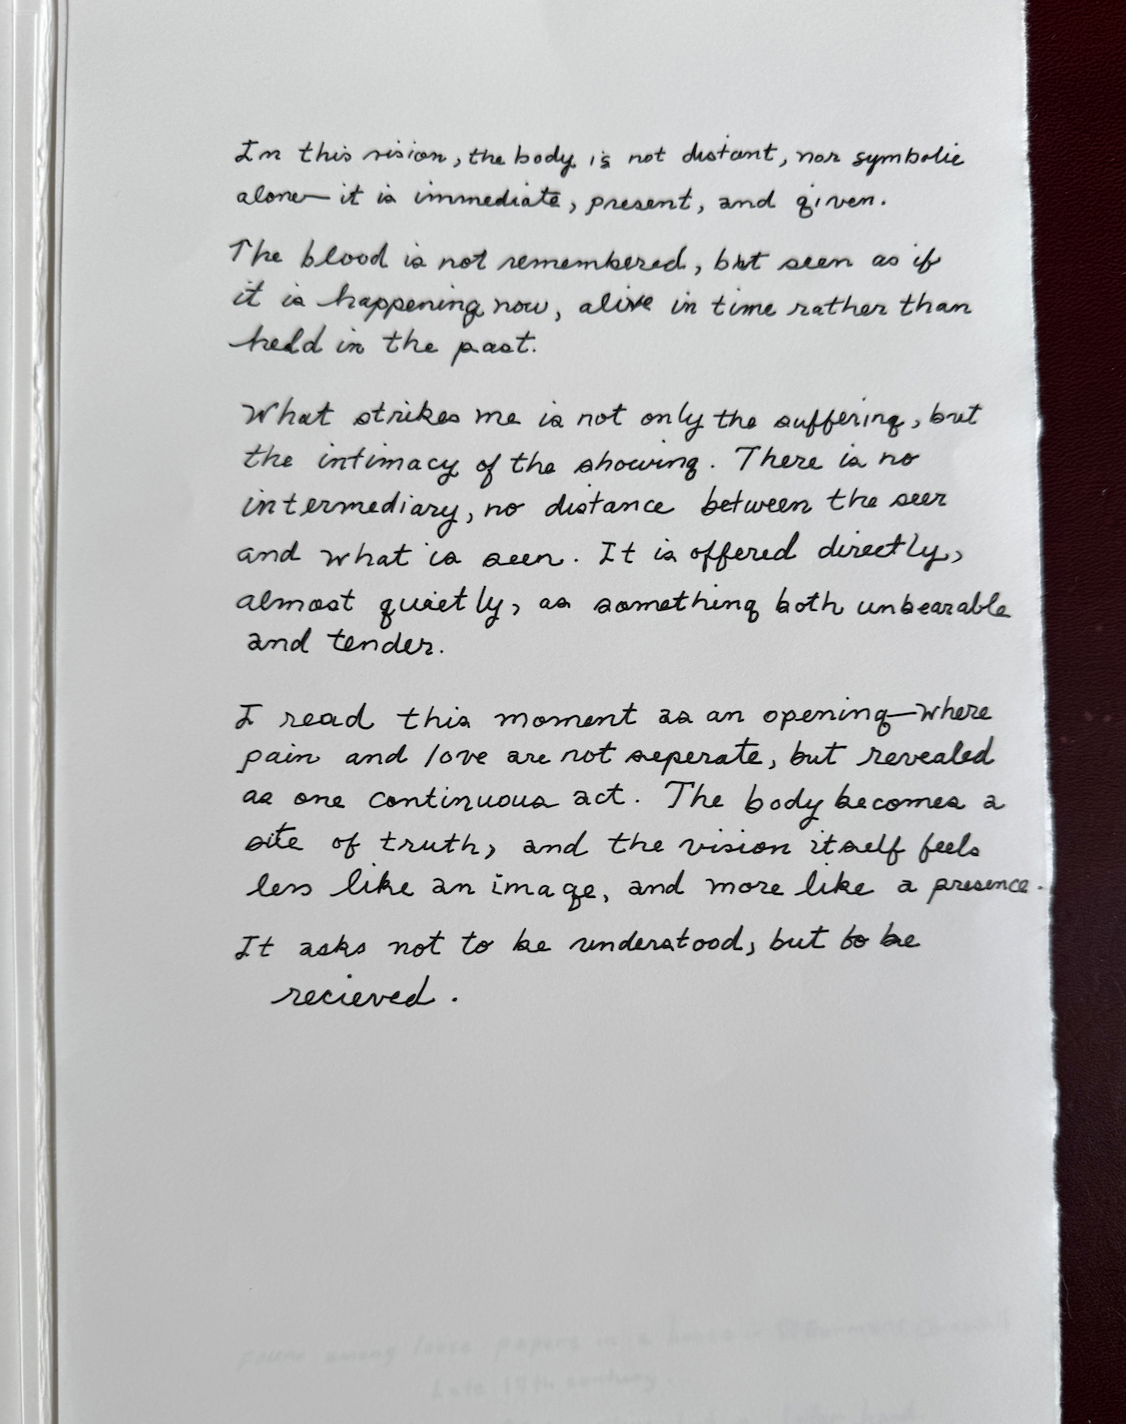 In this vision, the body is not distant, nor symbolic
alone— it is immediate, present, and given.
The blood is not remembered, but seen as if
it is happening now, alive in time rather than
held in the past.
What strikes me is not only the suffering, but
the intimacy of the showing. There is no
intermediary, no distance between the seer
and what is seen. It is offered directly,
almost quietly, as something both unbearable
and tender.
I read this moment as an opening—where
pain and love are not seperate, but revealed
as one continuous act. The body becomes a
site of truth, and the vision itself feels
less like an image, and more like a presence.
It asks not to be understood, but to be
recieved.
found among loose papers in a
Late 19th century.